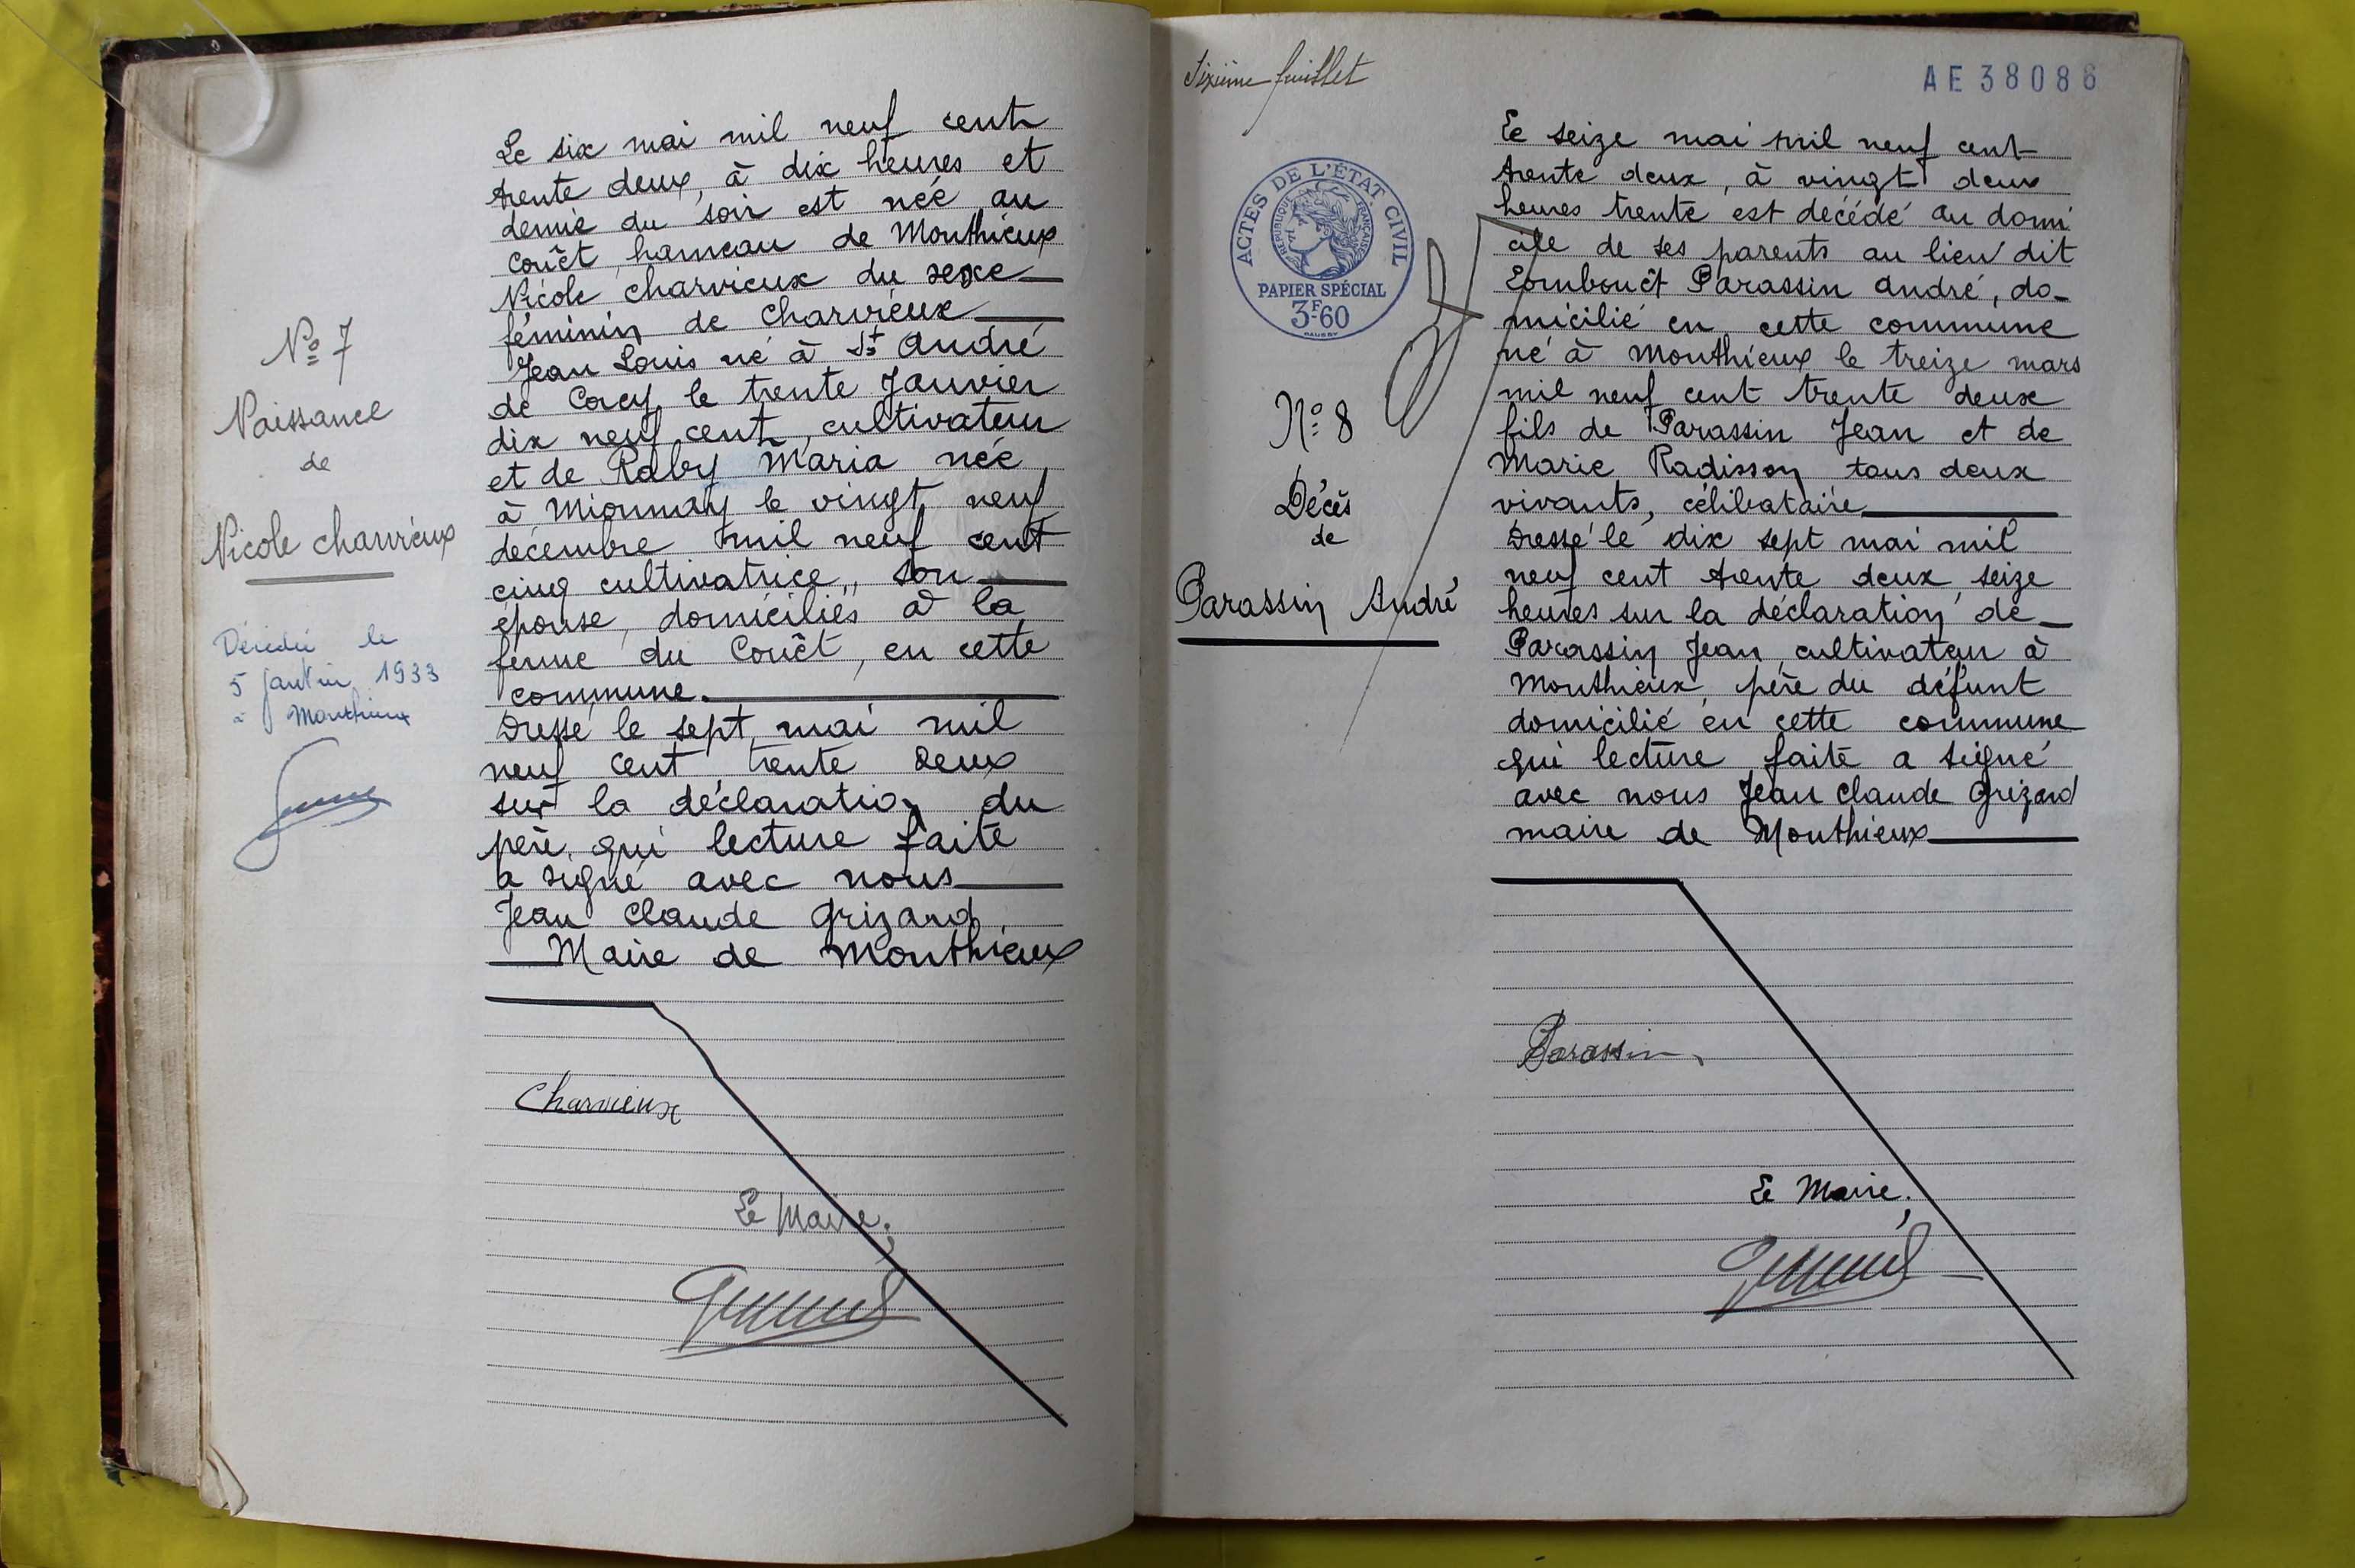 N° 7
Naissance
de
Nicole Charvieux
Décédée le
5 janvier 1933
à Monthieux
Le six mai mil neuf cent
trente deux, à dix heures et
demie du soir est née au
Couêt, hameau de Monthieux
Nicole Charvieux du sexe
féminin de Charvieux
Jean Louis né à St André
de Corcy le trente Janvier
dix neuf cent, cultivateur
et de Raby Maria née
à Mionnay le vingt neuf
décembre mil neuf cent
cinq cultivatrice, son
épouse, domiciliés à la
ferme du Couêt, en cette
commune.
Dressé le sept mai mil
neuf cent trente deux
sur la déclaration du
père, qui lecture faite
a signé avec nous
Jean Claude Grizard
Maire de Monthieux
Charvieux
Le Maire,
Sixième feuillet
AE 38086
ACTES DE L'ÉTAT CIVIL
RÉPUBLIQUE FRANÇAISE
PAPIER SPÉCIAL
3F60
N° 8
Décès
de
Parassin André
Le seize mai mil neuf cent
trente deux, à vingt deux
heures trente est décédé au domi
cile de ses parents au lieu dit
Combouêt Parassin André, do-
micilié en cette commune
né à Monthieux le treize mars
mil neuf cent trente deux
fils de Parassin Jean et de
Marie Radisson tous deux
vivants, célibataire
Dressé le dix sept mai mil
neuf cent trente deux seize
heures sur la déclaration de
Parassin Jean cultivateur à
Monthieux, père du défunt
domicilié en cette commune
qui lecture faite a signé
avec nous Jean Claude Grizard
maire de Monthieux
Parassin
Le Maire,